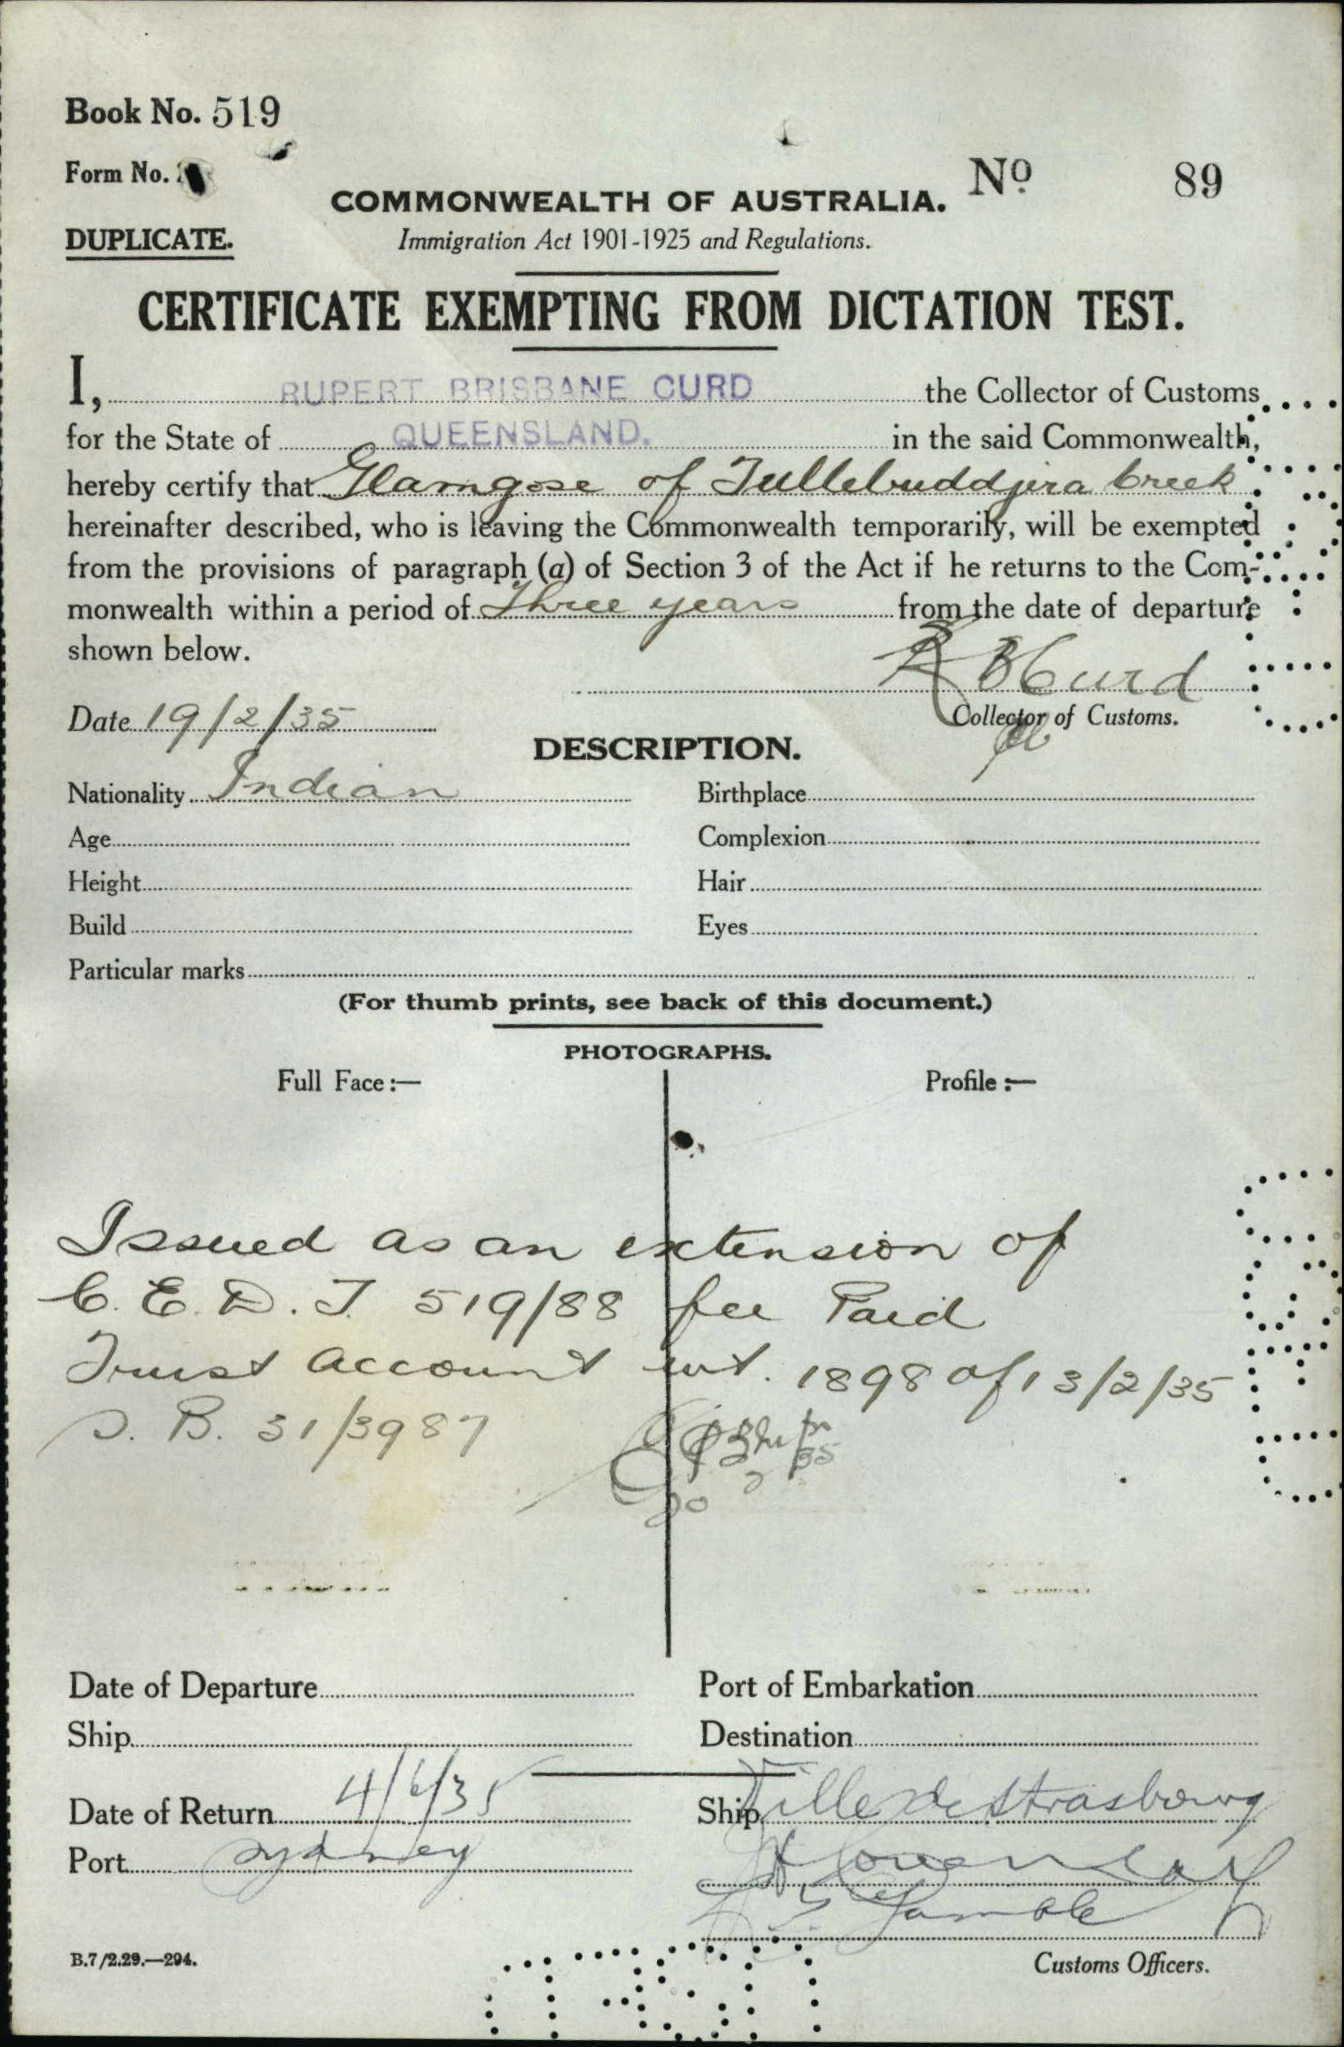 Book No. 519
Form No.
DUPLICATE.
COMMONWEALTH OF AUSTRALIA.
No 89
Immigration Act 1901-1925 and Regulations.
CERTIFICATE EXEMPTING FROM DICTATION TEST.
I, RUPERT BRISBANE CURD the Collector of Customs
for the State of QUEENSLAND. in the said Commonwealth,
hereby certify that Glamgose of Tullebuddjera Creek
hereinafter described, who is leaving the Commonwealth temporarily, will be exempted
from the provisions of paragraph (a) of Section 3 of the Act if he returns to the Com-
monwealth within a period of Three years from the date of departure
shown below.
R B Curd
Date 19/2/35
Collector of Customs.
DESCRIPTION.
Nationality Indian Birthplace
Age Complexion
Height Hair
Build Eyes
Particular marks
(For thumb prints, see back of this document.)
PHOTOGRAPHS.
Full Face:— Profile:—
Issued as an extension of
C. E. D. T. 519/88 fee Paid
Trust Account 1898 of 13/2/35
S. B. 31/3987
Date of Departure Port of Embarkation
Ship Destination
Date of Return 4/6/35 Ship Ville de Strasbourg
Port Sydney
Gamble
B.7/2.29.—294.
Customs Officers.